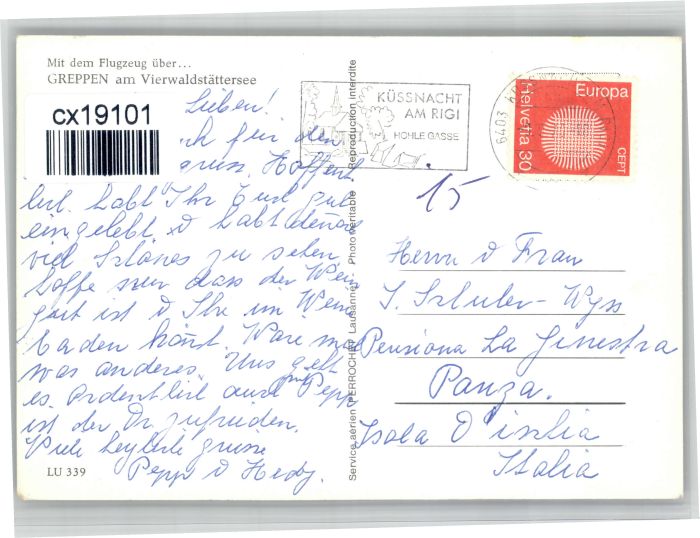 Mit dem Flugzeug über...
GREPPEN am Vierwaldstättersee
cx19101
Lieben!
für den
gruss. Hoffent
lich habt Ihr Euch gut
eingelebt & habt
viel Schönes zu sehen.
Hoffe nur dass der Wein
gut ist & Ihr im Wein
baden könt. Wäre mal
was anderes. Uns geht
es ordentlich auch mit Pepp
ist der Dr. zufrieden.
Viele herzliche grüsse
Pepp & Hedy.
LU 339
Service aérien PERROCHET Lausanne - Photo véritable Reproduction interdite
KÜSSNACHT
AM RIGI
HOHLE GASSE
6403
Europa
Helvetia 30
CEPT
15
Herrn & Frau
J. Schuler-Wyss
Pensiona La Ginestra
Panza.
Isola D'ischia
Italia